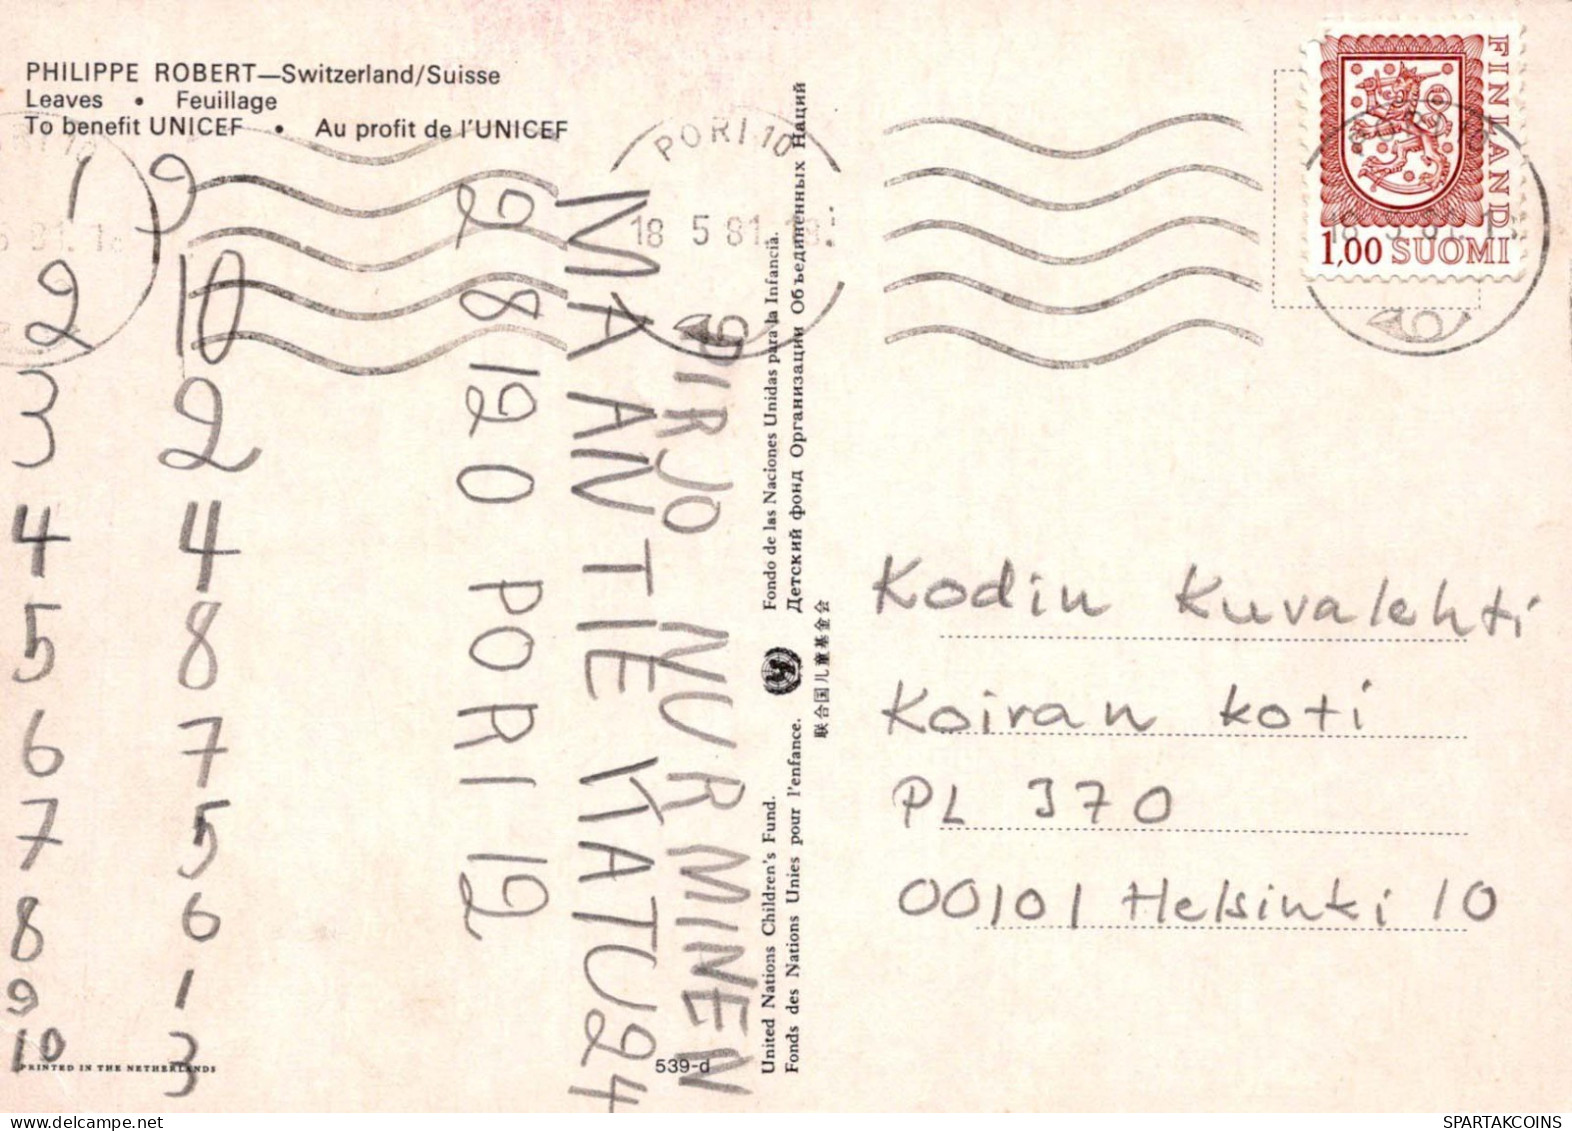 PHILIPPE ROBERT—Switzerland/Suisse
Leaves • Feuillage
To benefit UNICEF • Au profit de l'UNICEF
1 9
2 10
3 2
4 4
5 8
6 7
7 5
8 6
9 1
10 3
PRINTED IN THE NETHERLANDS
PIRJO NURMINEN
MAANTIEKATU 24
28120 PORI 12
539-d
PORI 10
18 5 81
Fondo de las Naciones Unidas para la Infancia.
Детский фонд Организации Объединенных Наций
联合国儿童基金会
United Nations Children's Fund.
Fonds des Nations Unies pour l'enfance.
FINLAND
1,00 SUOMI
Kodin Kuvalehti
Koiran koti
PL 370
00101 Helsinki 10
SPARTAKCOINS